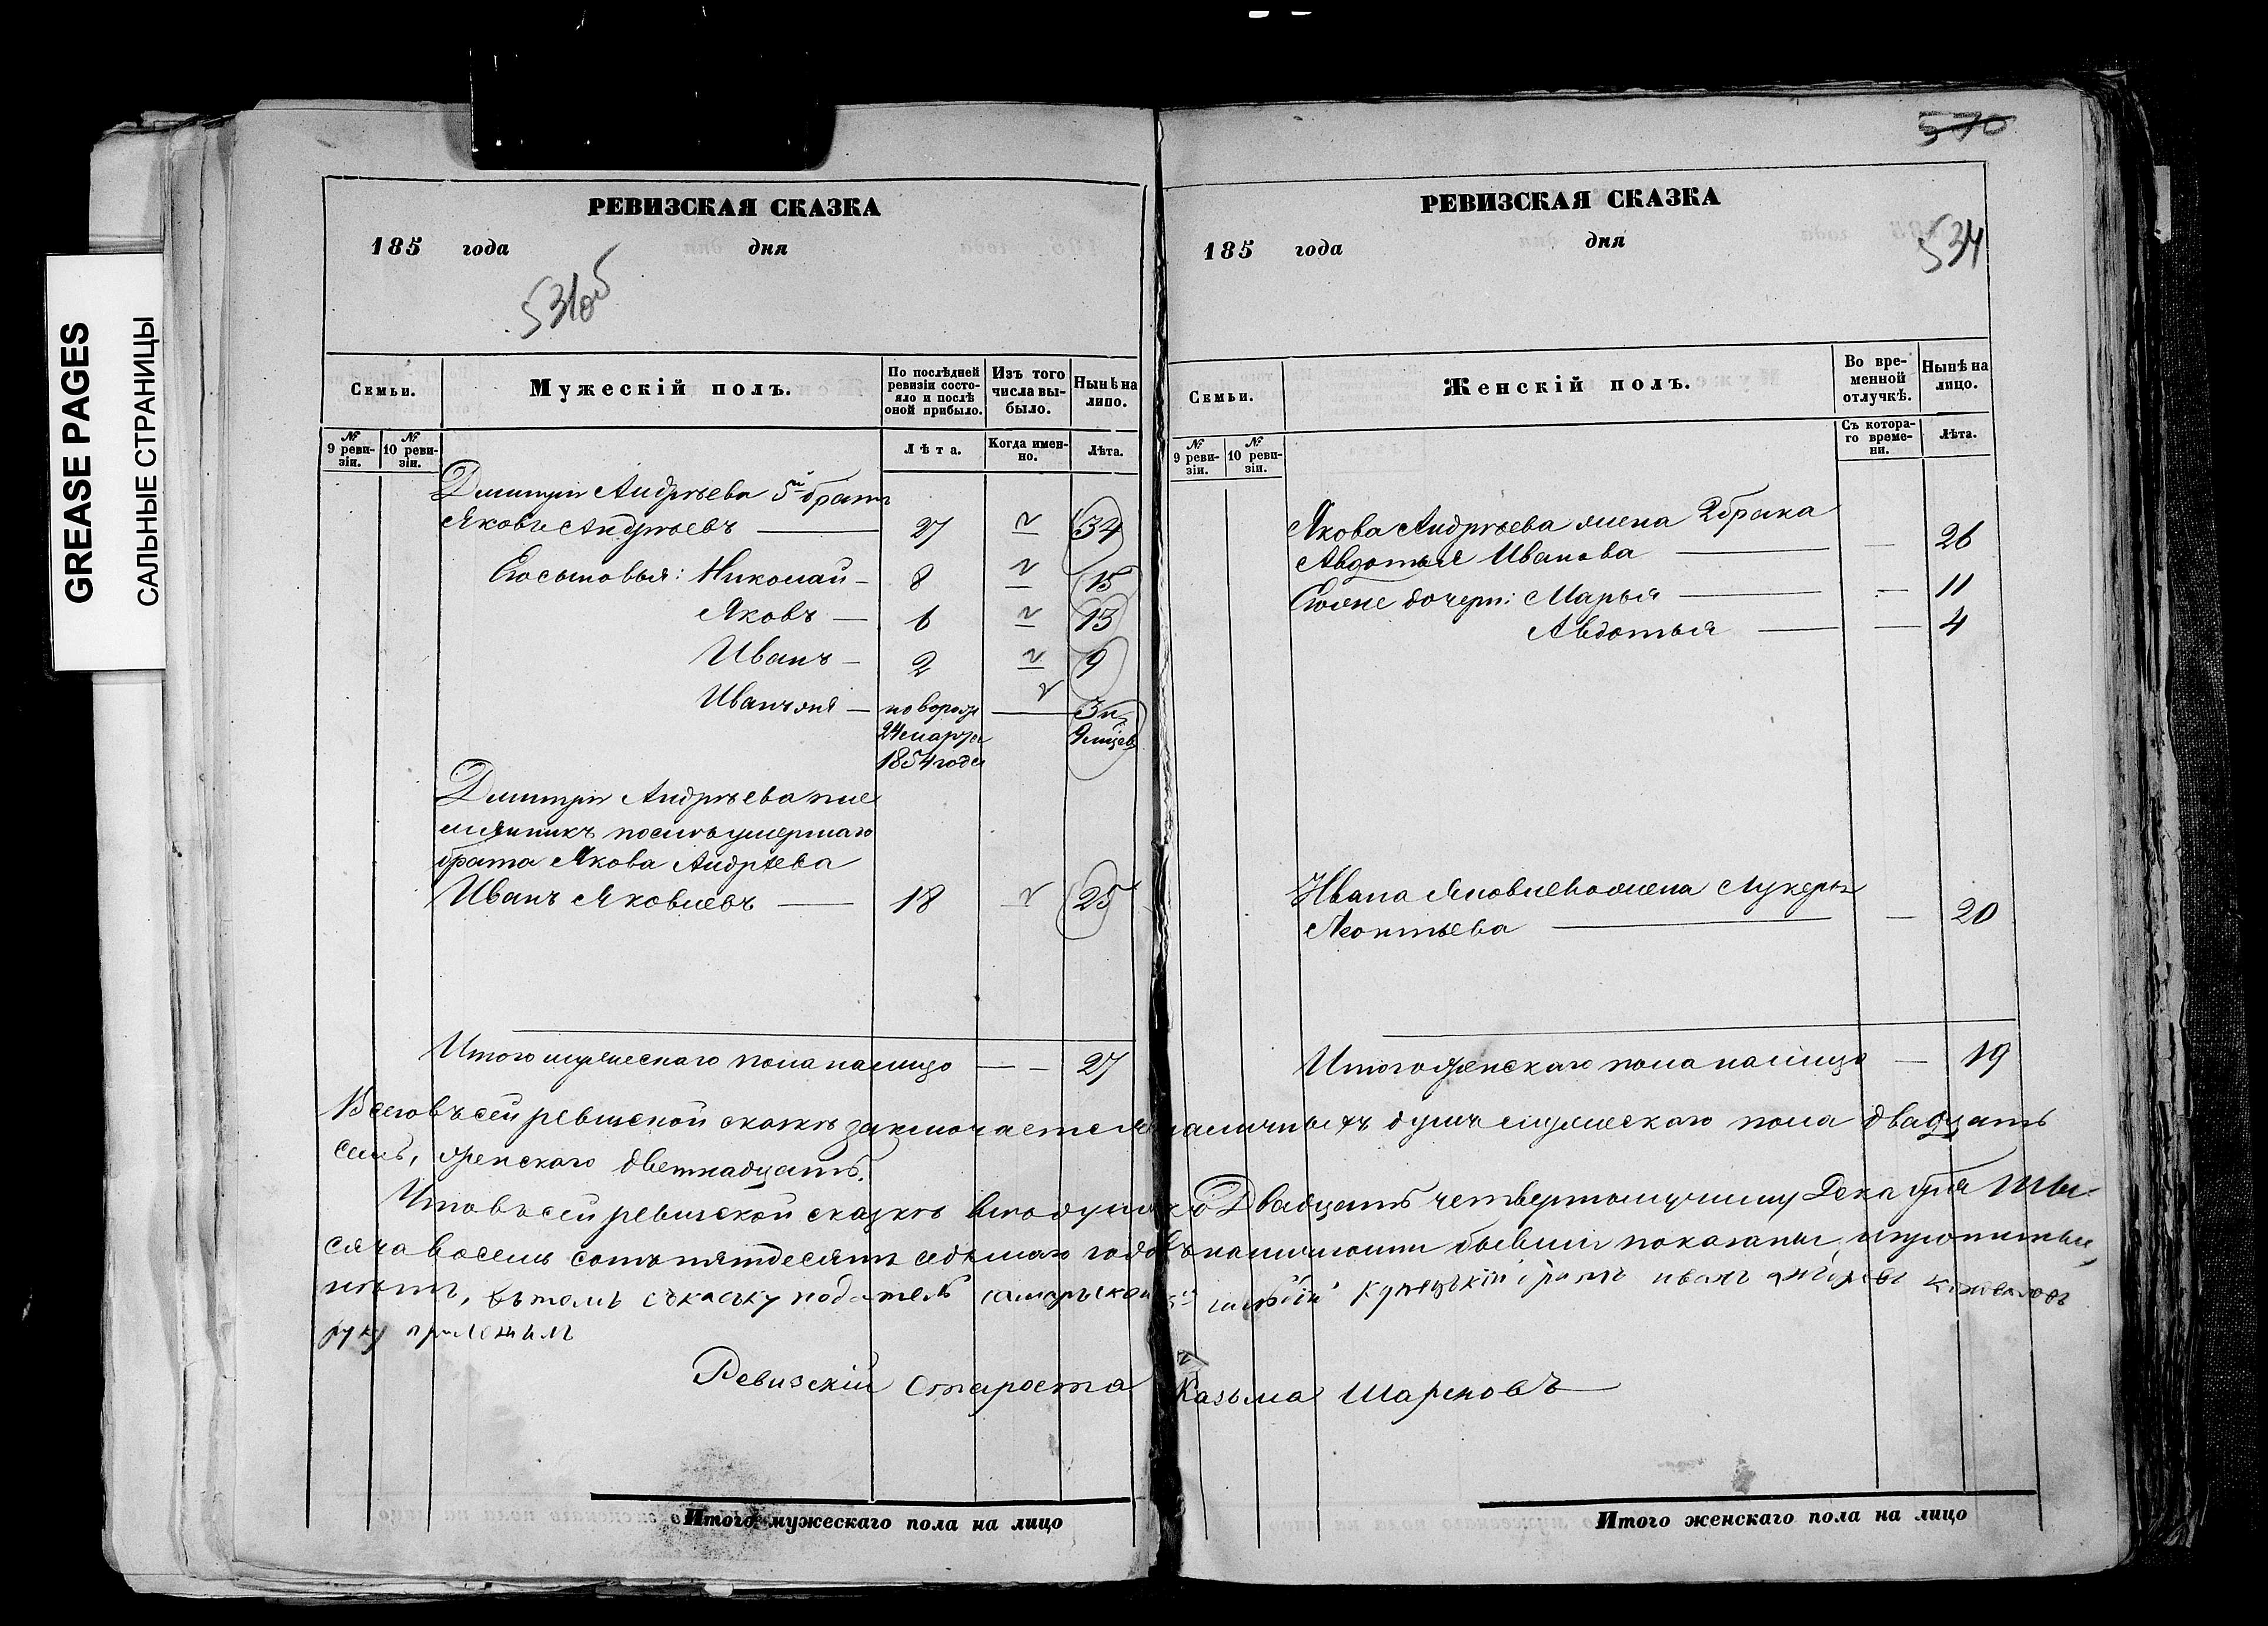 GREASE PAGES
САЛЬНЫЕ СТРАНИЦЫ
РЕВИЗСКАЯ СКАЗКА
185 года дня
531об
Семьи.
Мужескій полъ.
По послѣдней ревизіи состояло и послѣ оной прибыло.
Изъ того числа выбыло.
Нынѣ на лицо.
№ 9 ревизіи.
№ 10 ревизіи.
Лѣта.
Когда именно.
Лѣта.
Дмитрія Андрѣева 5й братъ
Яковъ Андрѣевъ — 27 34
Его сыновья: Николай — 8 15
Яковъ — 6 13
Иванъ — 2 9
Иванъ же — новорож 3 и
24 марта 9 мцев
1854 года
Дмитрія Андрѣева пле
мянникъ послѣ умершаго
брата Якова Андрѣева
Иванъ Яковлевъ — 18 25
Итого мужескаго пола на лицо — — 27
570
РЕВИЗСКАЯ СКАЗКА
185 года дня
534
Семьи.
Женскій полъ.
Во временной отлучкѣ.
Нынѣ на лицо.
№ 9 ревизіи.
№ 10 ревизіи.
Съ котораго времени.
Лѣта.
Якова Андрѣева жена 2 брака
Авдотья Иванова — — 26
Его же дочери: Марья — — 11
Авдотья — — 4
Ивана Яковлева жена Лукерья
Леонтьева — — 20
Итого женскаго пола на лицо — 19
Всего въ сей ревиской сказкѣ заключается наличныхъ душъ мужескаго пола двадцать
семь, женскаго деветнадцать.
Что въ сей ревиской сказкѣ всѣ души къ Двадцать четвертому числу Декабря Ты
сяча восемь сотъ пятдесятъ седьмаго года въ наличности бывши показаны, и пропитых
нѣтъ, въ томъ съкаску податель
руку приложилъ
Ревизскій Староста Казьма Шарековъ
Итого мужескаго пола на лицо
Итого женскаго пола на лицо